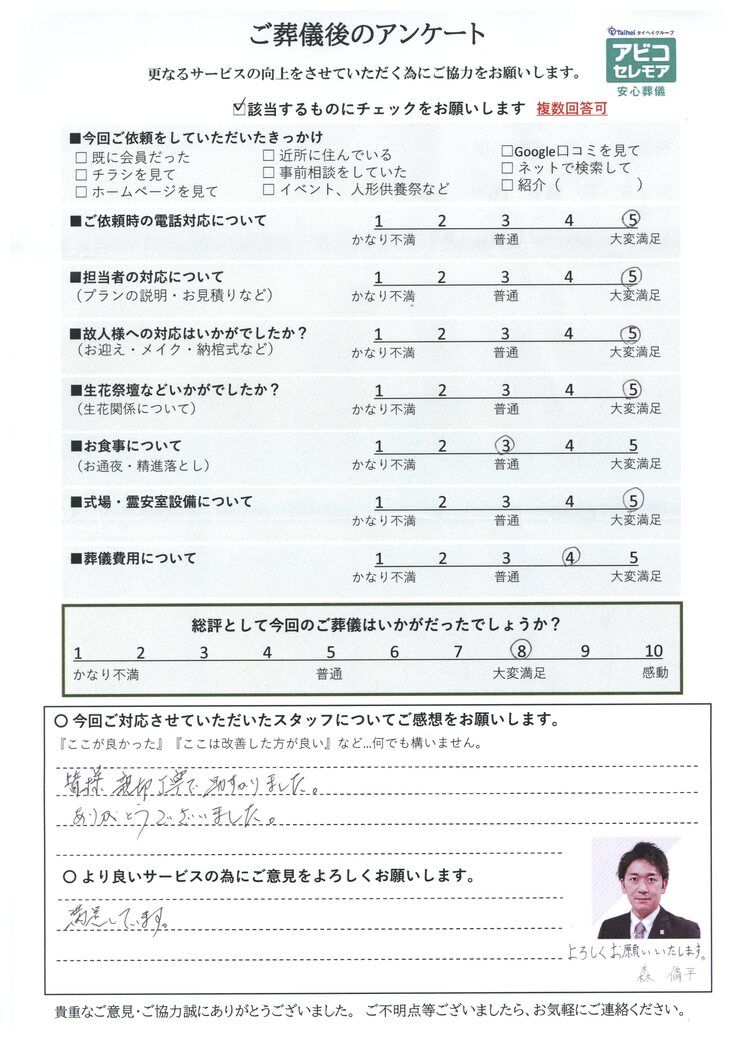 ご葬儀後のアンケート
Taihei タイヘイグループ
アビコ
セレモア
安心葬儀
更なるサービスの向上をさせていただく為にご協力をお願いします。
☑該当するものにチェックをお願いします 複数回答可
■今回ご依頼をしていただいたきっかけ
□ 既に会員だった □ 近所に住んでいる □Google口コミを見て
□ チラシを見て □ 事前相談をしていた □ ネットで検索して
□ ホームページを見て □ イベント、人形供養祭など □ 紹介（ ）
■ご依頼時の電話対応について 1 2 3 4 5
かなり不満 普通 大変満足
■担当者の対応について 1 2 3 4 5
（プランの説明・お見積りなど） かなり不満 普通 大変満足
■故人様への対応はいかがでしたか？ 1 2 3 4 5
（お迎え・メイク・納棺式など） かなり不満 普通 大変満足
■生花祭壇などいかがでしたか？ 1 2 3 4 5
（生花関係について） かなり不満 普通 大変満足
■お食事について 1 2 3 4 5
（お通夜・精進落とし） かなり不満 普通 大変満足
■式場・霊安室設備について 1 2 3 4 5
かなり不満 普通 大変満足
■葬儀費用について 1 2 3 4 5
かなり不満 普通 大変満足
総評として今回のご葬儀はいかがだったでしょうか？
1 2 3 4 5 6 7 8 9 10
かなり不満 普通 大変満足 感動
〇 今回ご対応させていただいたスタッフについてご感想をお願いします。
『ここが良かった』『ここは改善した方が良い』など…何でも構いません。
皆様親切丁寧で助かりました。
ありがとうございました。
〇 より良いサービスの為にご意見をよろしくお願いします。
満足しています。
よろしくお願いいたします。
森 脩平
貴重なご意見・ご協力誠にありがとうございました。 ご不明点等ございましたら、お気軽にご連絡ください。